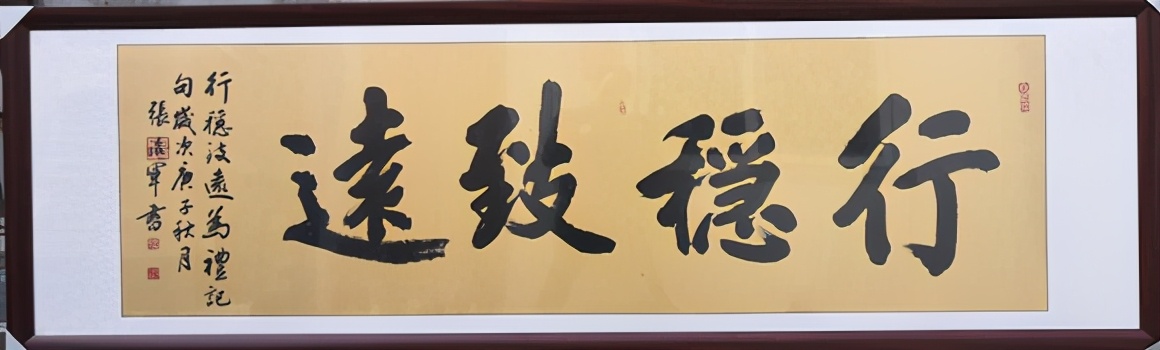 行穩致遠
行穩致遠為禮記
句歲次庚子秋月
張軍書